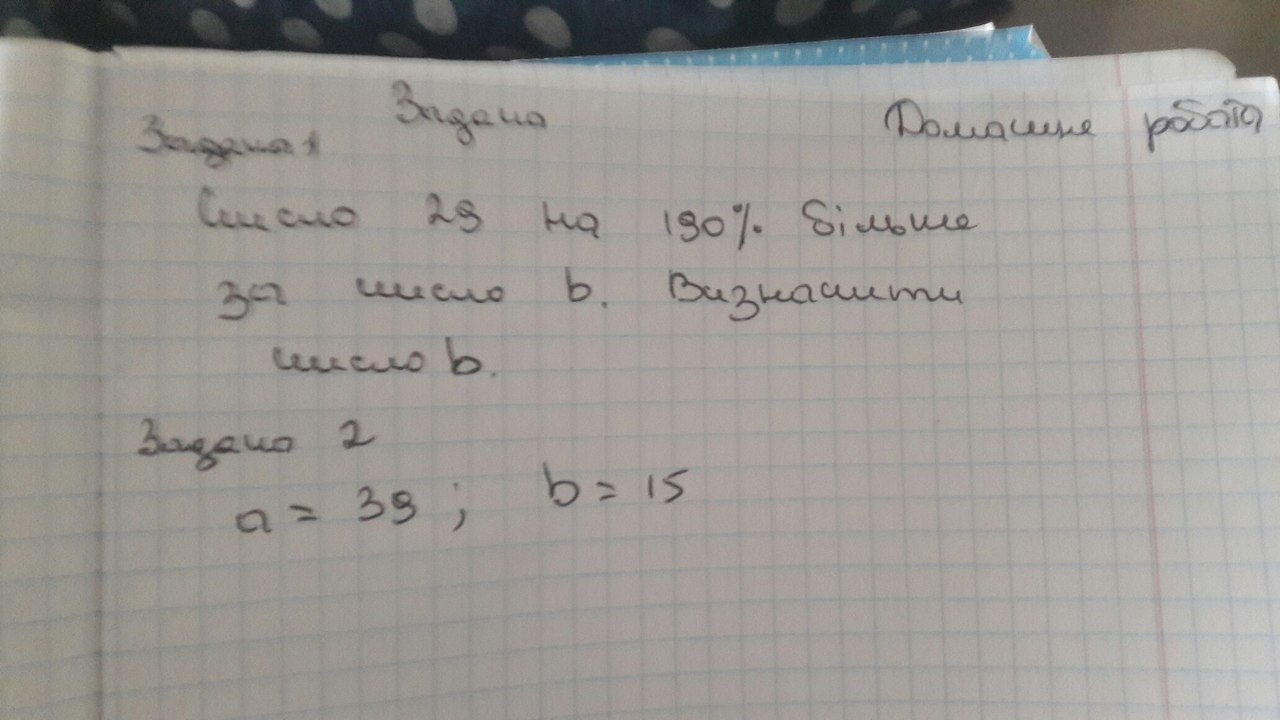 Задача Домашня робота
Задача 1
Число 29 на 190% більше
за число b. Визначити
число b.
Задача 2
a = 39 ; b = 15